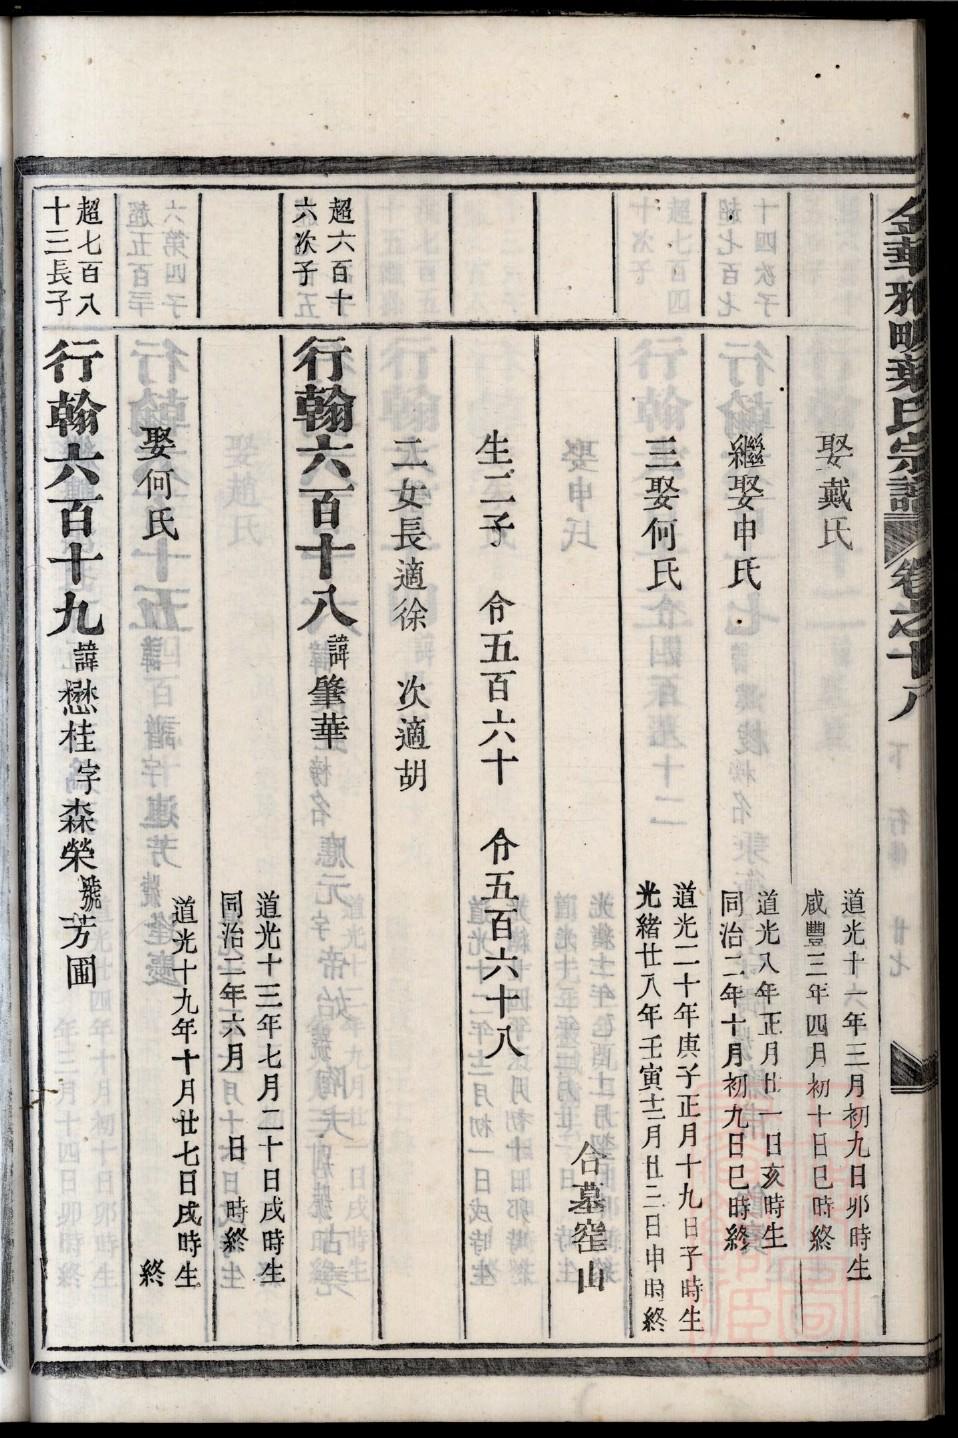 金華雅畈葉氏宗譜 卷之十八 下 行傳 廿七
娶戴氏
道光十一年三月初九日卯時生
咸豐三年四月初十日巳時終
繼娶申氏
道光八年正月廿一日亥時生
同治二年十月初九日巳時終
三娶何氏
道光二十年庚子正月十九日子時生
光緒廿八年壬寅十二月廿三日申時終
合墓窑山
生二子 令五百六十 令五百六十八
二女長適徐 次適胡
超六百十
六次子
行翰六百十八 諱肇華
道光十三年七月二十日戌時生
同治二年六月 日 時終
娶何氏
道光十九年十月廿七日戌時生
終
超七百八
十三長子
行翰六百十九 諱懋桂字森榮號芳圃